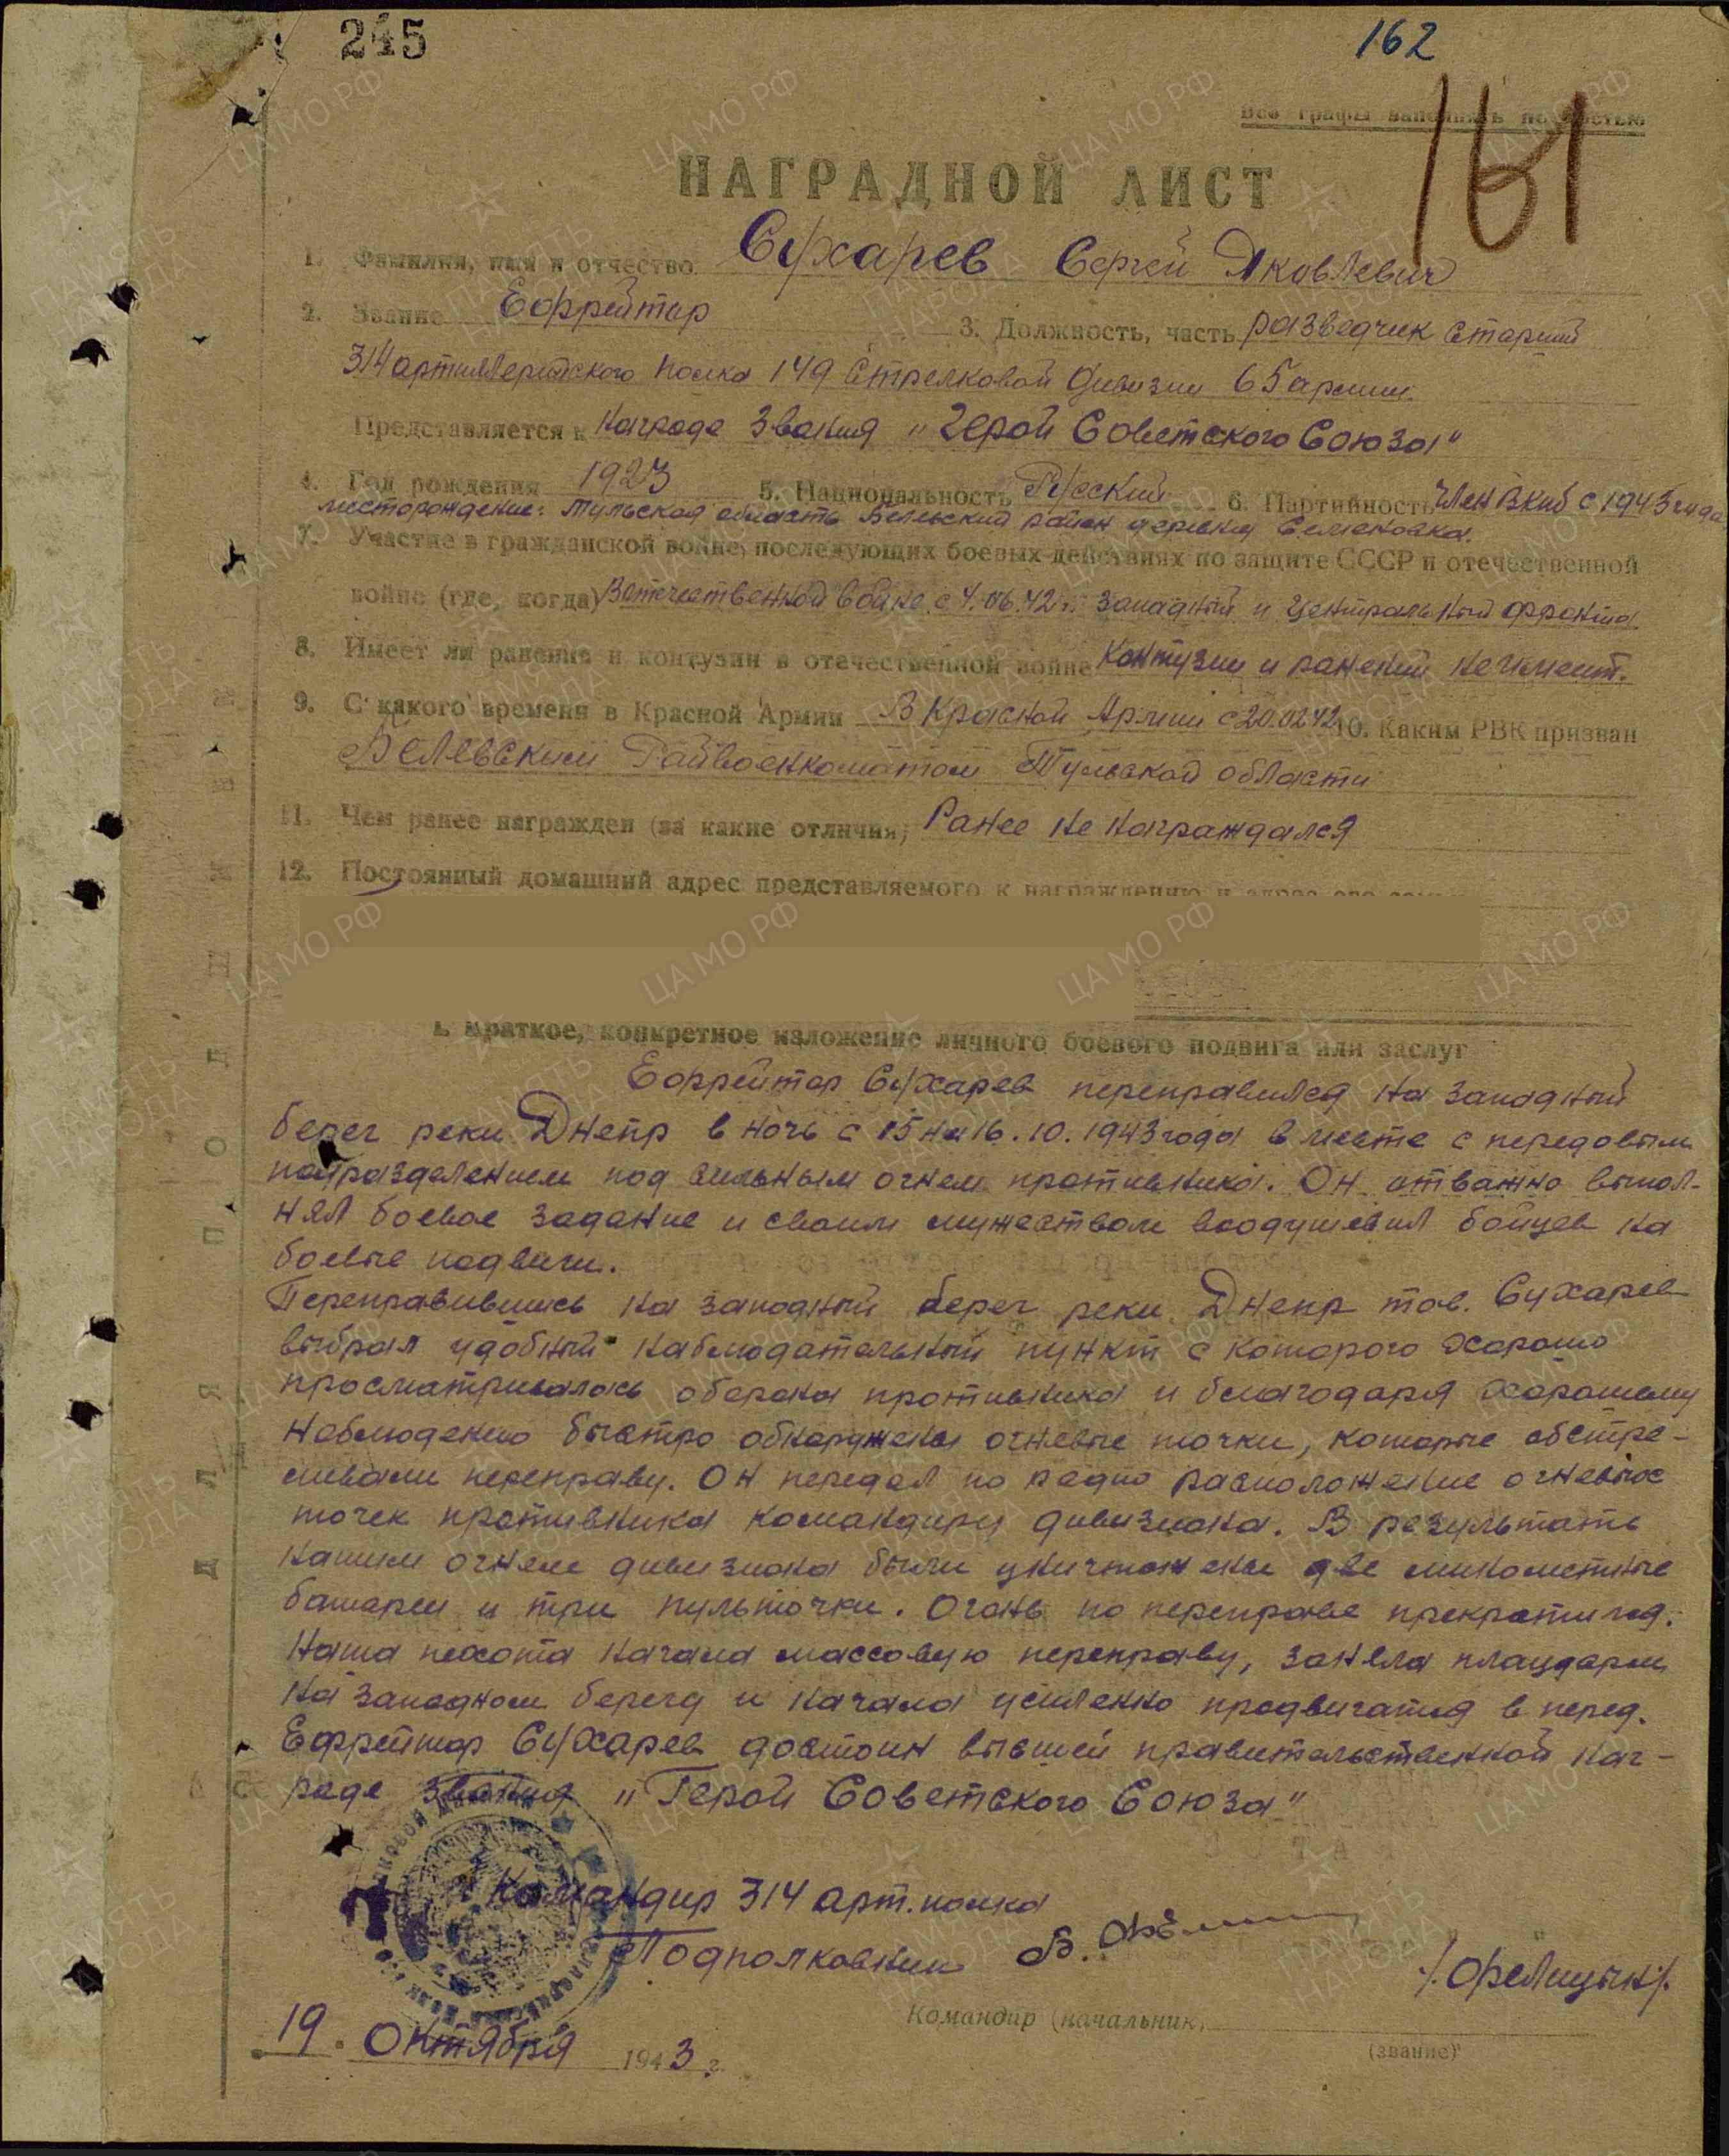 245
162
161
Все графы заполнять полностью
НАГРАДНОЙ ЛИСТ
1. Фамилия, имя и отчество Сухарев Сергей Яковлевич
2. Звание Ефрейтор 3. Должность, часть разведчик старший
314 артиллерийского полка 149 стрелковой дивизии 65 армии.
Представляется к награде звания "Герой Советского Союза"
4. Год рождения 1923 5. Национальность Русский 6. Партийность член ВКПб с 1943 года
месторождение: Тульская область Бельский район деревня Семеновка.
7. Участие в гражданской войне, последующих боевых действиях по защите СССР и отечественной
войне (где, когда) В отечественной войне с 4.06.42 г. западный и центральный фронта.
8. Имеет ли ранение и контузии в отечественной войне Контузии и ранений не имеет.
9. С какого времени в Красной Армии В Красной Армии с 20.02.42 10. Каким РВК призван
Белевским Райвоенкоматом Тульской области
11. Чем ранее награжден (за какие отличия) Ранее не награждался
12. Постоянный домашний адрес представляемого к награждению и адрес его
I. Краткое, конкретное изложение личного боевого подвига или заслуг
Ефрейтор Сухарев переправился на западный
берег реки Днепр в ночь с 15 на 16.10.1943 года в месте с передовым
подразделением под сильным огнем противника. Он отважно выпол-
нял боевое задание и своим мужеством воодушевил бойцев на
боевые подвиги.
Переправившись на западный берег реки Днепр тов. Сухарев
выбрал удобный наблюдательный пункт с которого хорошо
просматривалась оборона противника и благодаря хорошему
наблюдению быстро обнаружены огневые точки, которые обстре-
ливали переправу. Он передал по радио расположение огневых
точек противника командиру дивизиона. В результате
нашим огнем дивизиона были уничтожены две минометные
батареи и три пульточки. Огонь по переправе прекратился.
Наша пехота начала массовую переправу, заняла плацдарм
на западном берегу и начала усиленно продвигатся в перед.
Ефрейтор Сухарев достоин высшей правительственной наг-
раде звания "Герой Советского Союза"
Командир 314 арт. полка
Подполковник
/Фелицын/
Командир (начальник)
(звание)
19. Октября 1943 г.
ДЛЯ ПОД
ЦАМО РФ
ПАМЯТЬ НАРОДА